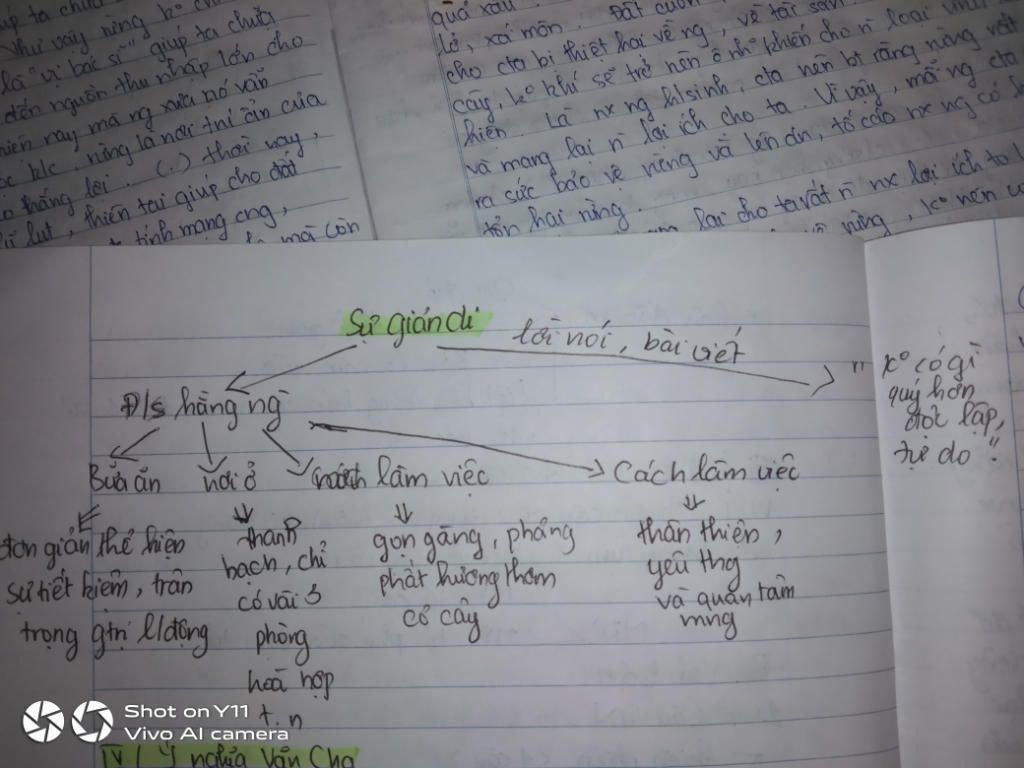 úp ta chữa
như vậy rừng k°
là "vị bác sĩ" giúp ta chữa
đến nguồn thu nhập lớn cho
hiện nay mà ng xưa nó vẫn
k/c. rừng là nơi trú ẩn của
thắng lợi. (.) thời nay,
lũ lụt, thiên tai giúp cho đất
tính mạng cng,
mà còn
quá xấu.
lở, xói mòn. Đất
cho cta bị thiệt hại về ng, về tài sản
cây, k° khí sẽ trở nên ô nh° khiến cho n loài
hiểm. Là nx ng h/sinh, cta nên bt rằng rừng rất
và mang lại n lợi ích cho ta. Vì vậy, mỗi ng cta
ra sức bảo vệ rừng và lên án, tố cáo nx ng có
tổn hại rừng.
lại cho ta rất n nx lợi ích to
rừng, k° nên
Sự giản dị
lời nói, bài viết
Đ/s hằng ng
" K° có gì
quý hơn
độc lập,
tự do".
Bữa ăn nơi ở làm việc Cách làm việc
đơn giản thể hiện
sự tiết kiệm, trân
trọng gtrị l/động
thanh
bạch, chỉ
có vài 3
phòng
hoà hợp
t.n
gọn gàng, phảng
phất hương thơm
cỏ cây
thân thiện,
yêu thg
và quan tâm
mng
IV / Ý nghĩa văn chg
Shot on Y11
Vivo AI camera